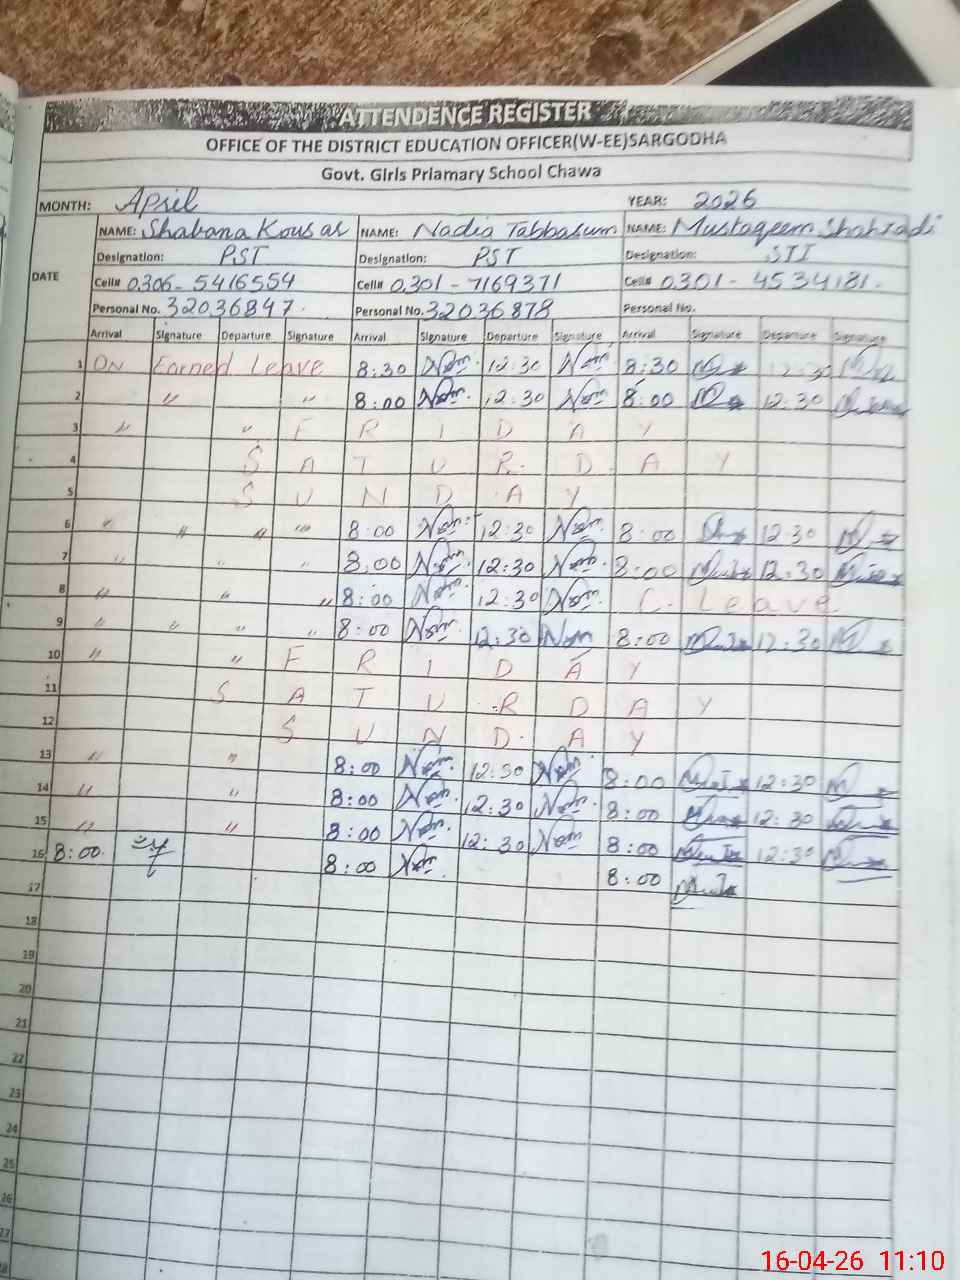 ATTENDENCE REGISTER
OFFICE OF THE DISTRICT EDUCATION OFFICER(W-EE)SARGODHA
Govt. Girls Priamary School Chawa
MONTH: April YEAR: 2026
NAME: Shabana Kousar NAME: Nadia Tabbasum NAME: Mustaqeem Shahzadi
Designation: PST Designation: PST Designation: STI
DATE
Cell# 0306-5416554 Cell# 0301-7169371 Cell# 0301-4534181.
Personal No. 32036847. Personal No. 32036878 Personal No.
Arrival Signature Departure Signature Arrival Signature Departure Signature Arrival Signature Departure Signature
1 ON Earned Leave 8:30 12:30 8:30 12:30
2 " " 8:00 12:30 8:00 12:30
3 " " F R I D A Y
4 S A T U R D A Y
5 S U N D A Y
6 " " " " 8:00 12:30 8:00 12:30
7 " " " 8:00 12:30 8:00 12:30
8 " " " 8:00 12:30 C. Leave
9 " " " " 8:00 12:30 8:00 12:30
10 " " F R I D A Y
11 S A T U R D A Y
12 S U N D A Y
13 " " 8:00 12:30 8:00 12:30
14 " " 8:00 12:30 8:00 12:30
15 " " 8:00 12:30 8:00 12:30
16 8:00. 8:00 8:00
17
18
19
20
21
22
23
24
25
26
27
28
16-04-26 11:10